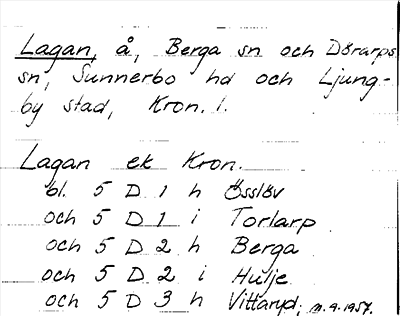 Lagan, å, Berga sn och Dörarps
sn, Sunnerbo hd och Ljung-
by stad, Kron. l.
Lagan ek Kron.
bl. 5 D 1 h Össlöv
och 5 D 1 i Torlarp
och 5 D 2 h Berga
och 5 D 2 i Hulje
och 5 D 3 h Vittaryd; m.9.1957.